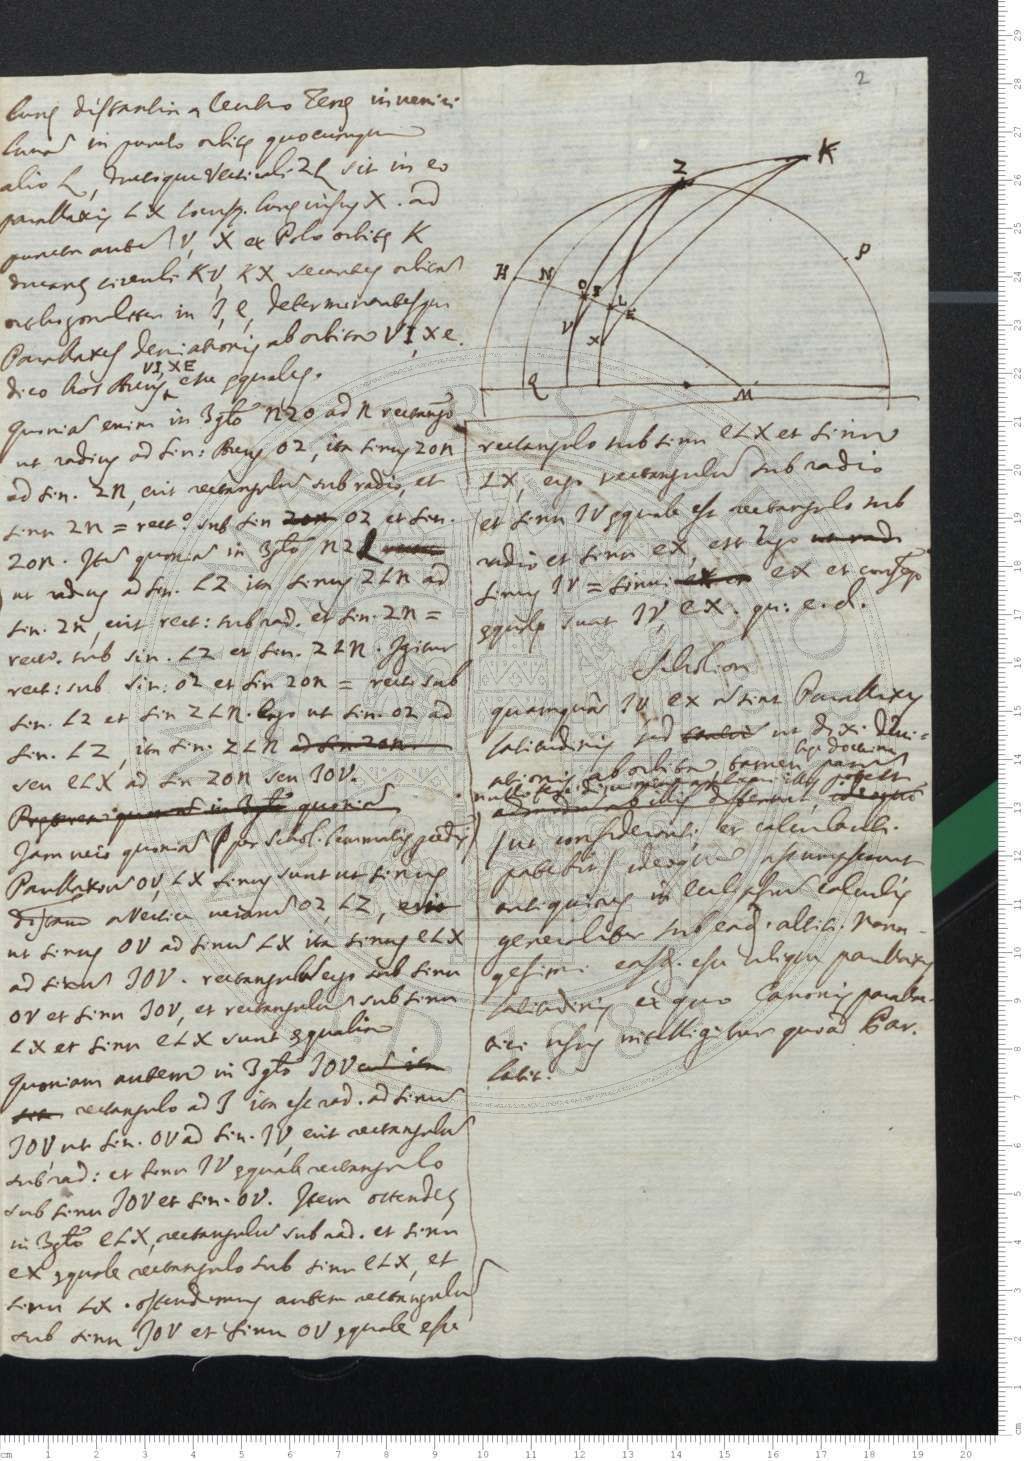 2
lunę distantia a Centro Terrę inveniri
lunam in puncto orbitę quocumque
alio L, ductoque Verticali ZL sit in eo
parallaxis LX locusq. lunę visus X. ad
puncta autem V, X ex Polo orbitę K
ducantur circuli KV, KX secantes orbitam
orthogonaliter in I, e, determinantesque
Parallaxes deviationis ab orbita VI, Xe.
VI, XE
dico hos Arcus esse ęquales.
Quoniam enim in 3gulo NZO ad N rectangulo
ut radius ad sin: Arcus OZ, ita sinus ZON
ad sin. ZN, erit rectangulum sub radio, et
sinu ZN = rect.o sub sin OZ et sin.
ZON. Item quoniam in 3gulo NZL
ut radius ad sin. LZ ita sinus ZLN ad
sin. ZN, erit rect: sub rad. et sin. ZN =
recto. sub sin. LZ et sin. ZLN. Igitur
rect: sub sin: OZ et sin ZON = rect: sub
sin. LZ et sin ZLN. Ergo ut sin. OZ ad
sin. LZ, ita sin. ZLN ad sin ZON.
seu eLX ad sin ZON seu IOV.
Preterea quoniam in 3gulo quoniam
Jam vero quoniam (per Schol. lemmatis pręced.)
Parallaxium OV, LX sinus sunt ut sinus
distantiarum a Vertice OZ, LZ,
ut sinus OV ad sinum LX ita sinus eLX
ad sinum IOV. rectangulum ergo sub sinu
OV et sinu IOV, et rectangulum sub sinu
LX et sinu eLX sunt ęqualia
Quoniam autem in 3gulo IOV
rectangulo ad I ita est rad. ad sinum
IOV ut sin. OV ad sin. IV, erit rectangulum
sub rad: et sinu IV ęquale rectangulo
sub sinu IOV et sin. OV. Item ostendes
in 3gulo eLX, rectangulum sub rad. et sinu
eX ęquale rectangulo sub sinu eLX, et
sinu LX. ostendimus autem rectangulum
sub sinu IOV et sinu OV ęquale esse
Z K
P
H N O S L E
V X
Q M
rectangulo sub sinu eLX et sinu
LX, ergo rectangulum sub radio
et sinu IV ęquale est rectangulo sub
radio et sinu eX, est ergo
sinus IV = sinui eX et
ęquales sunt IV, eX. qu: e. d.
Scholion
quamquam IV eX non sint Parallaxes
latitudinis sed ut dixi devi-
ationis ab orbita tamen
differunt,
consideranti, et calculanti.
patebit) ideoque assumpserunt
antiquiores in Eclipsium calculis
generaliter sub eadem altit. Nona-
gesimi eamdem esse ubique parallaxim
latitudinis ex quo Canonis parallac-
tici usus intelligitur quoad Par.
latit.